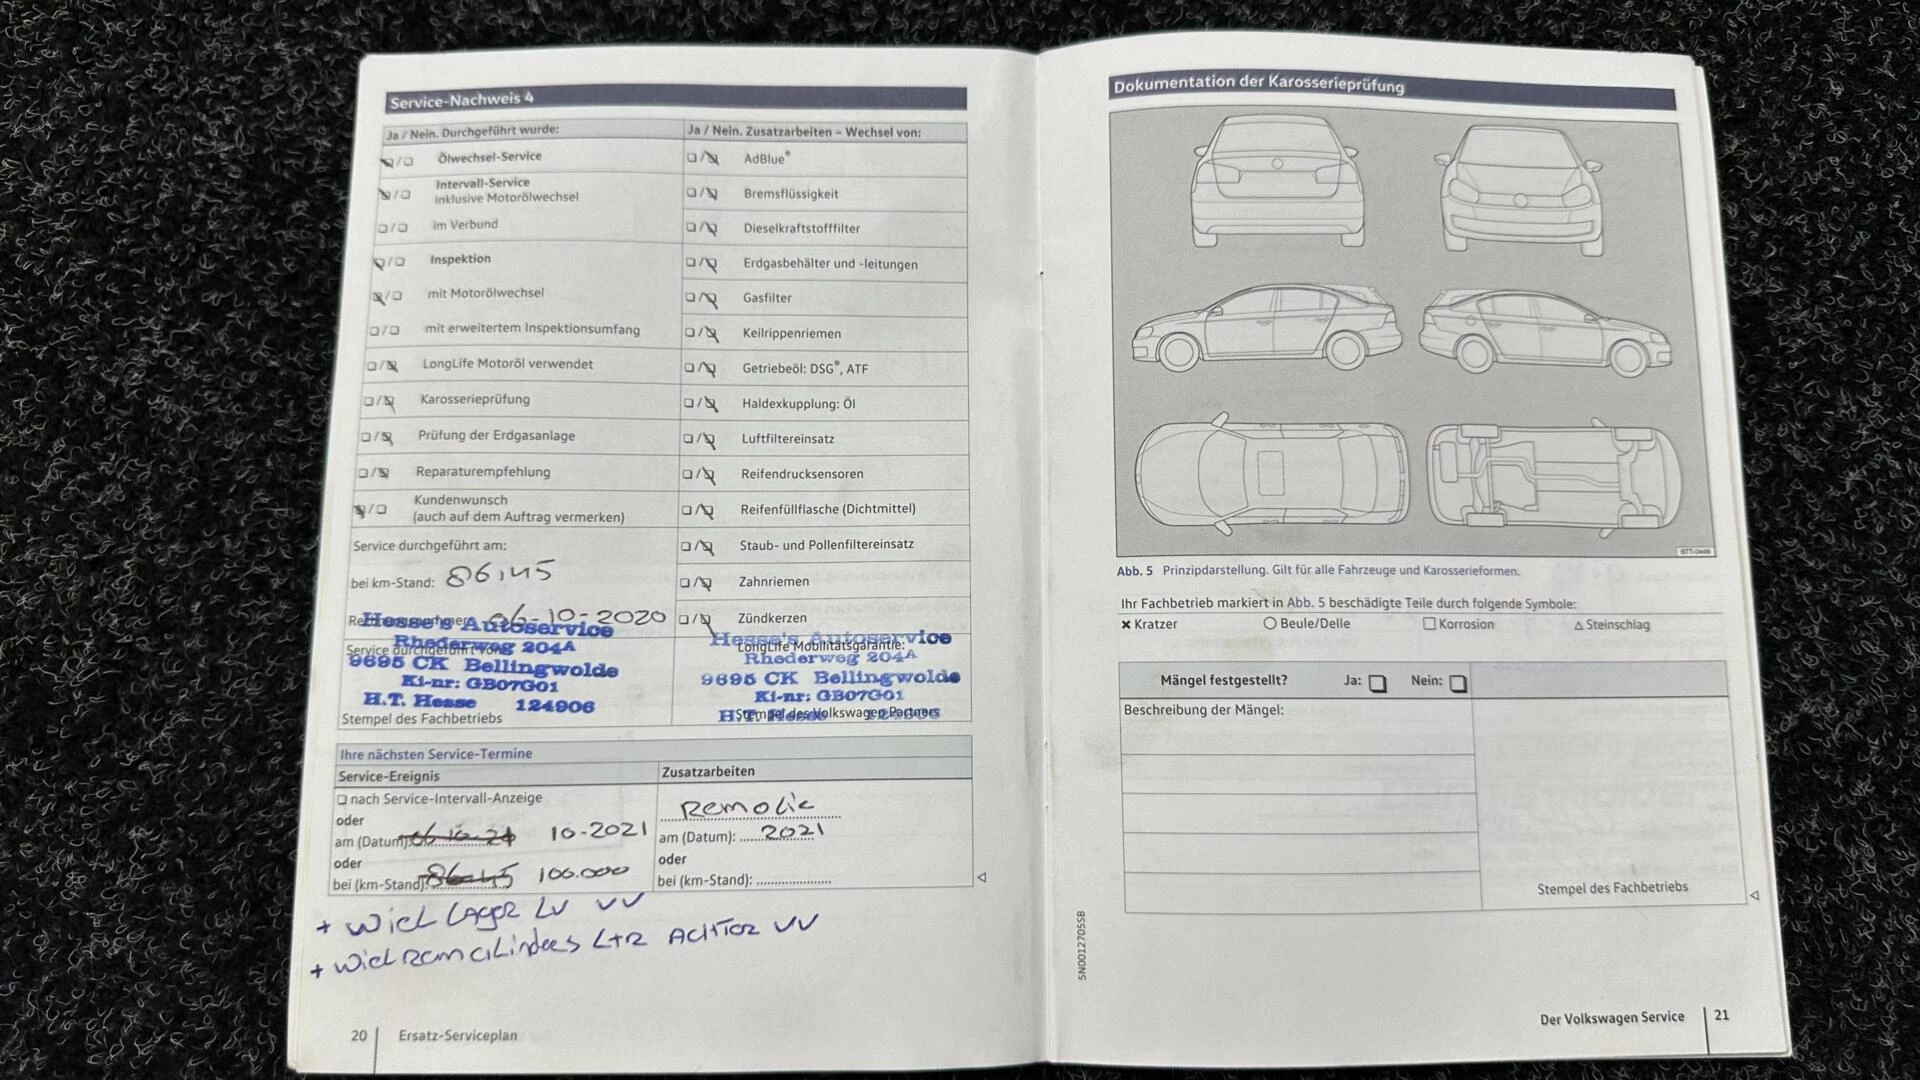 Service-Nachweis 4
Ja / Nein. Durchgeführt wurde:
Ölwechsel-Service
Intervall-Service
inklusive Motorölwechsel
im Verbund
Inspektion
mit Motorölwechsel
mit erweitertem Inspektionsumfang
LongLife Motoröl verwendet
Karosserieprüfung
Prüfung der Erdgasanlage
Reparaturempfehlung
Kundenwunsch
(auch auf dem Auftrag vermerken)
Service durchgeführt am:
bei km-Stand: 86,145
06-10-2020
Hesse's Autoservice
Rhederweg 204A
Service durchgeführt von:
9695 CK Bellingwolde
Ki-nr: GB07G01
H.T. Hesse 124906
Stempel des Fachbetriebs
Ja / Nein. Zusatzarbeiten – Wechsel von:
AdBlue®
Bremsflüssigkeit
Dieselkraftstofffilter
Erdgasbehälter und -leitungen
Gasfilter
Keilrippenriemen
Getriebeöl: DSG®, ATF
Haldexkupplung: Öl
Luftfiltereinsatz
Reifendrucksensoren
Reifenfüllflasche (Dichtmittel)
Staub- und Pollenfiltereinsatz
Zahnriemen
Zündkerzen
Hesse's Autoservice
LongLife Mobilitätsgarantie:
Rhederweg 204A
9695 CK Bellingwolde
Ki-nr: GB07G01
Stempel des Volkswagen Partners
Ihre nächsten Service-Termine
Service-Ereignis
nach Service-Intervall-Anzeige
oder
am (Datum): 10-2021
oder
bei (km-Stand): 100.000
Zusatzarbeiten
Remolie
am (Datum): 2021
oder
bei (km-Stand):
+ wiel Lager LV VV
+ wielremcilinders L+R ACHTER VV
20 Ersatz-Serviceplan
Dokumentation der Karosserieprüfung
BTT-0449
Abb. 5 Prinzipdarstellung. Gilt für alle Fahrzeuge und Karosserieformen.
Ihr Fachbetrieb markiert in Abb. 5 beschädigte Teile durch folgende Symbole:
× Kratzer ○ Beule/Delle □ Korrosion △ Steinschlag
Mängel festgestellt? Ja: Nein:
Beschreibung der Mängel:
Stempel des Fachbetriebs
5N0012705SB
Der Volkswagen Service 21